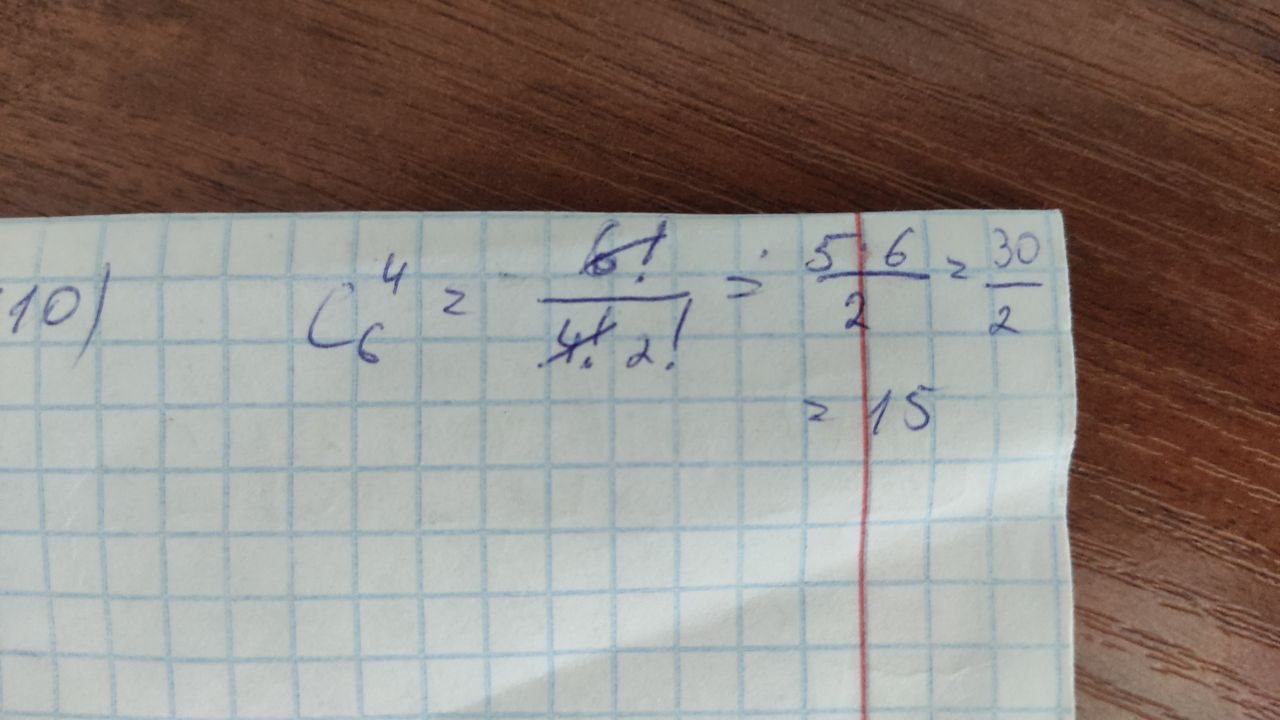 10) C₆⁴ = 6! / 4! 2! = 5 · 6 / 2 = 30 / 2
= 15